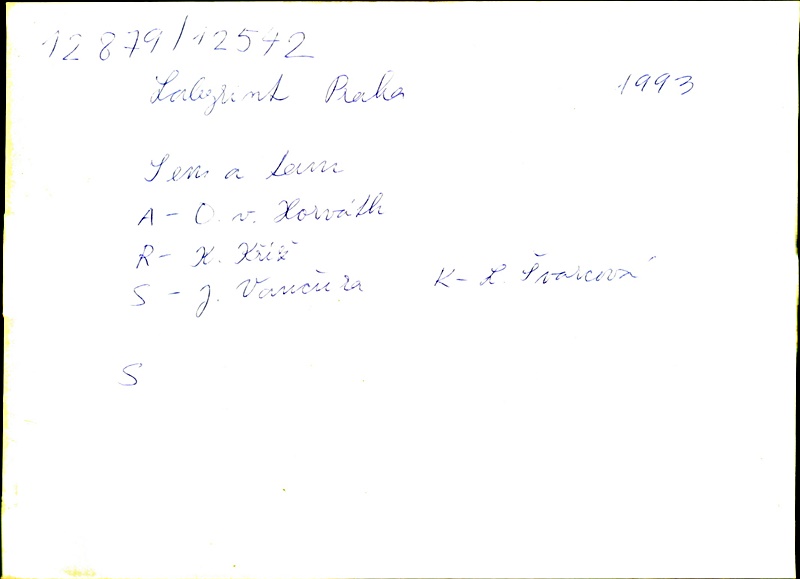 12879/12542
Labyrint Praha 1993
Sem a tam
A - O. v. Horváth
R - K. Kříž
S - J. Vančura K - L. Švarcová
S